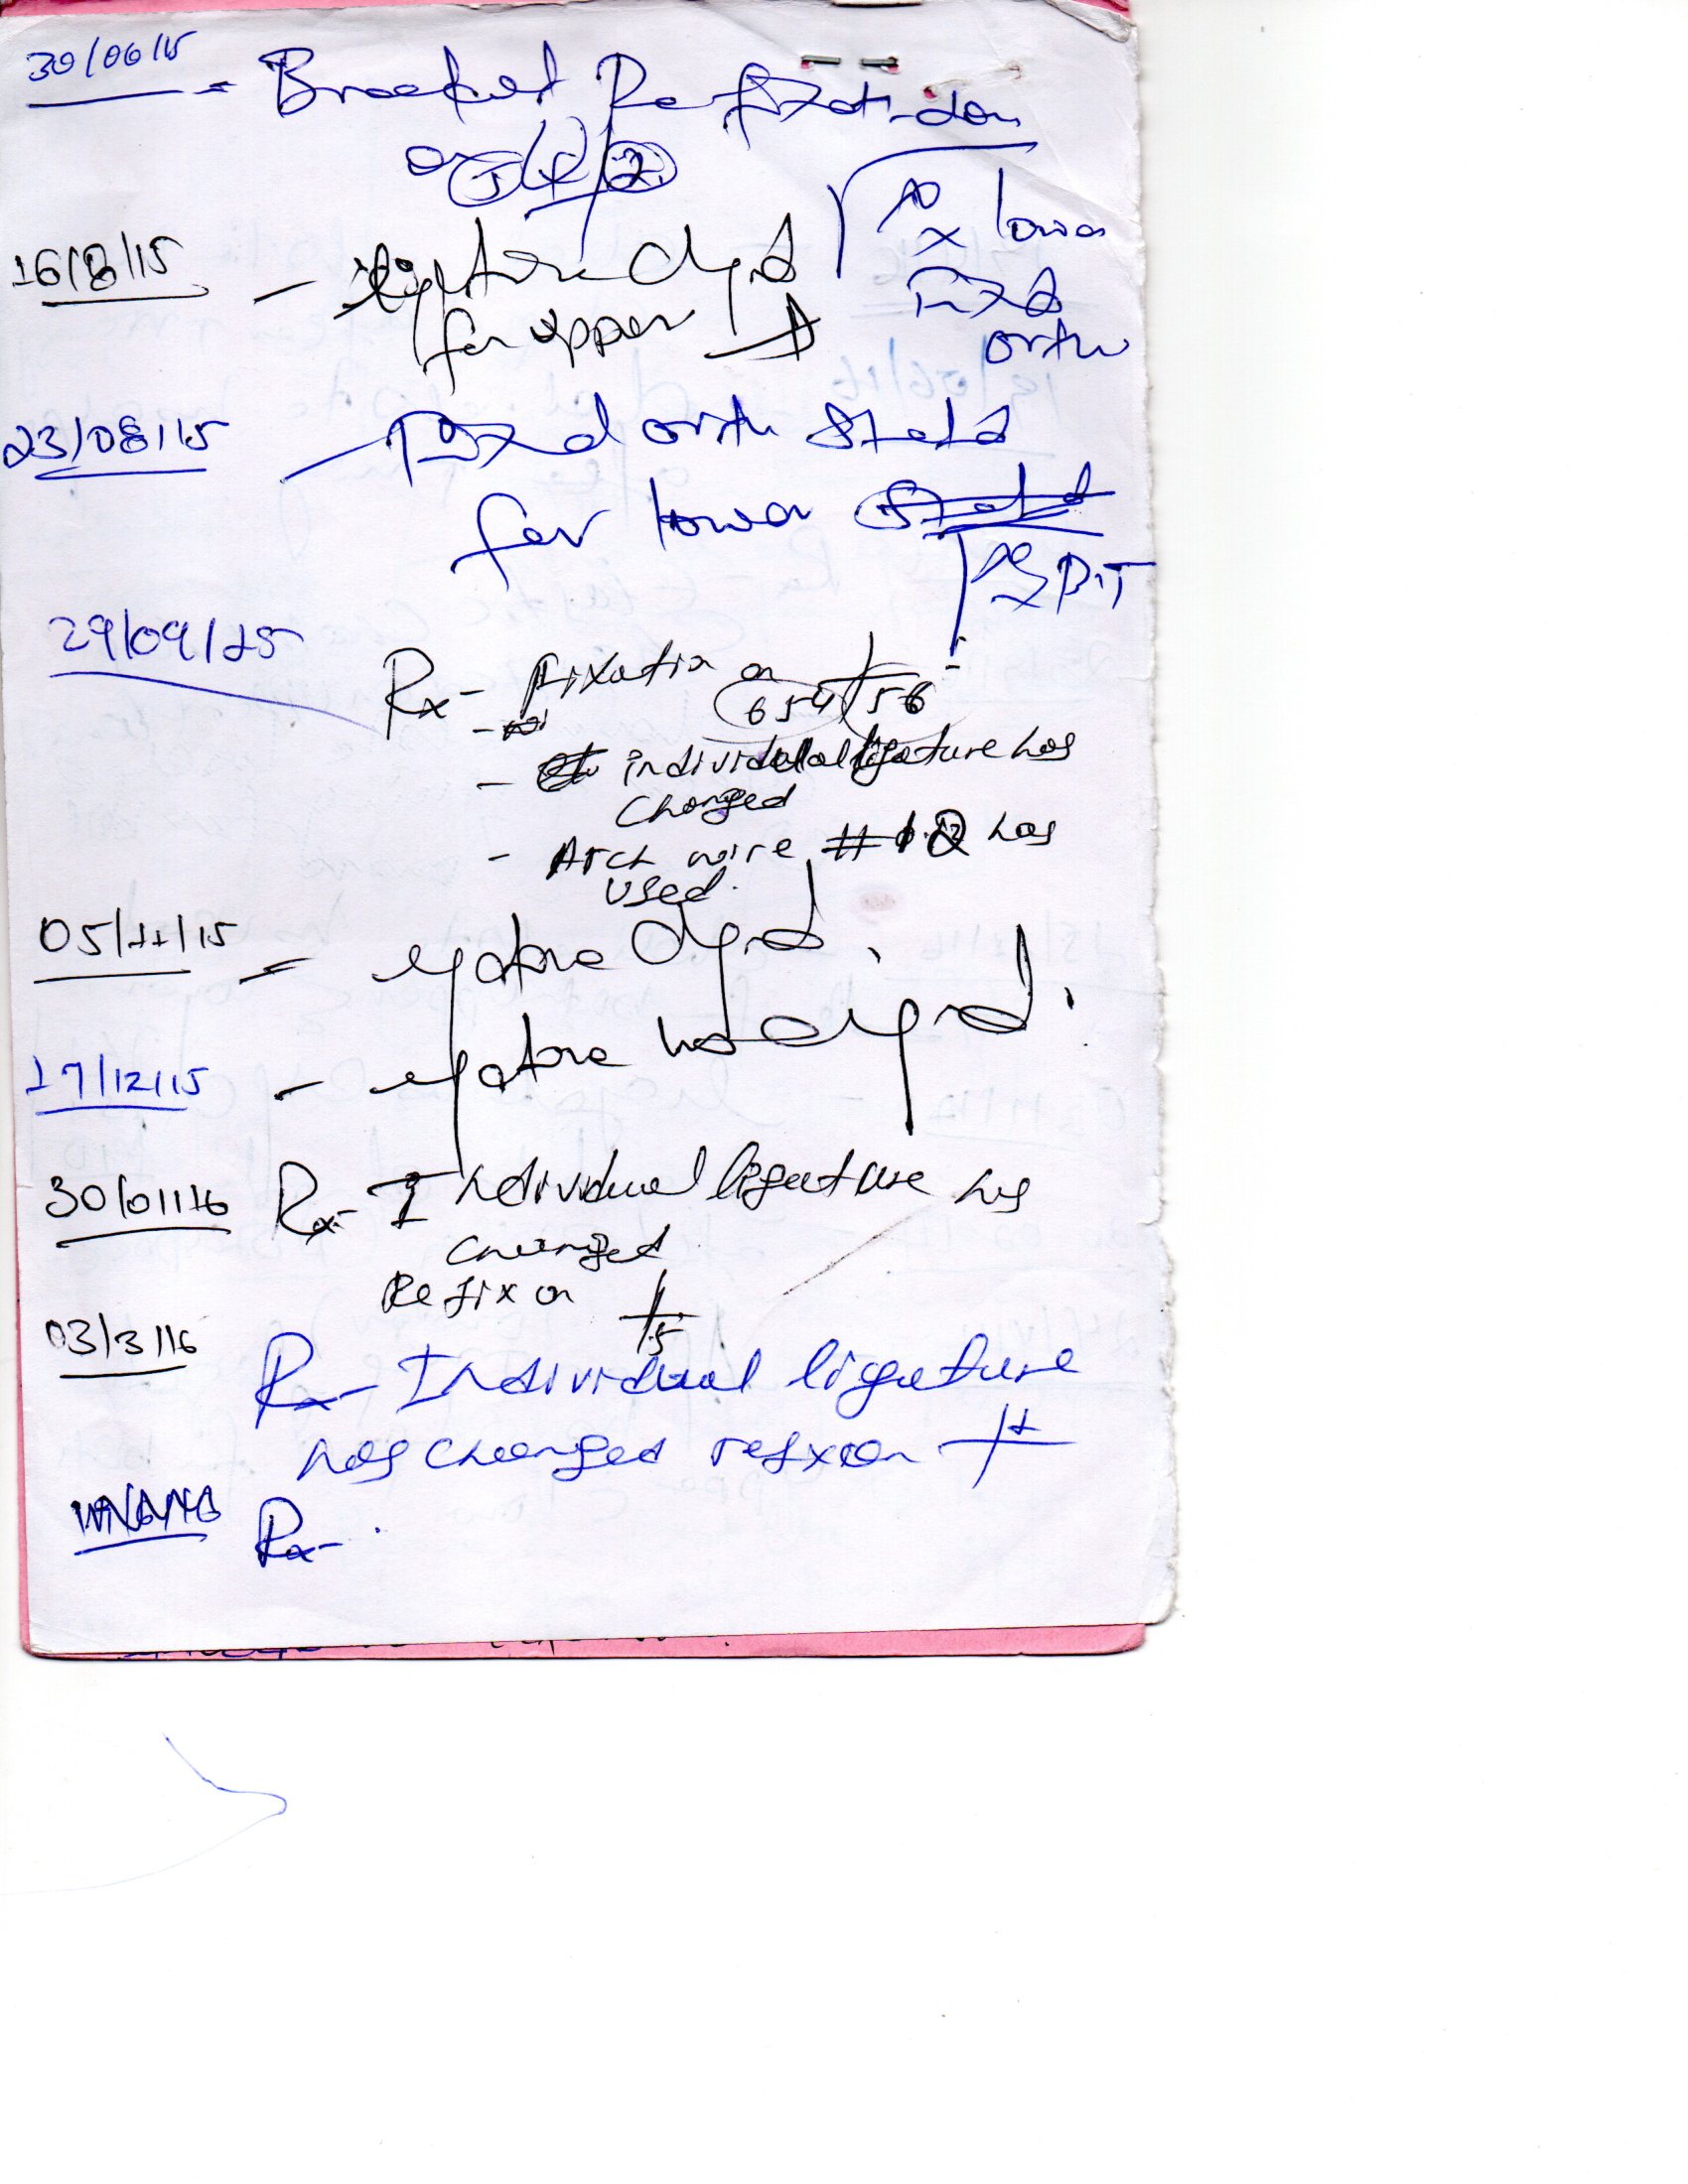 30/06/15 - Bracket Refixation
on 5 4 / 2
Rx lower
Fixd
orth
16/8/15 - ligature chgd
for upper
23/08/15 - Fixed orth Statd
for lower
29/09/15
Rx - Fixation on 654 / 56
- individual ligature has
changed
- Arch wire # has
used.
05/11/15 - ligature chgd.
17/12/15 - ligature has chgd.
30/01/16 Rx- Individual ligature has
changed
Refix on 5
03/3/16
Rx- Individual ligature
has changed refix on
Rx-